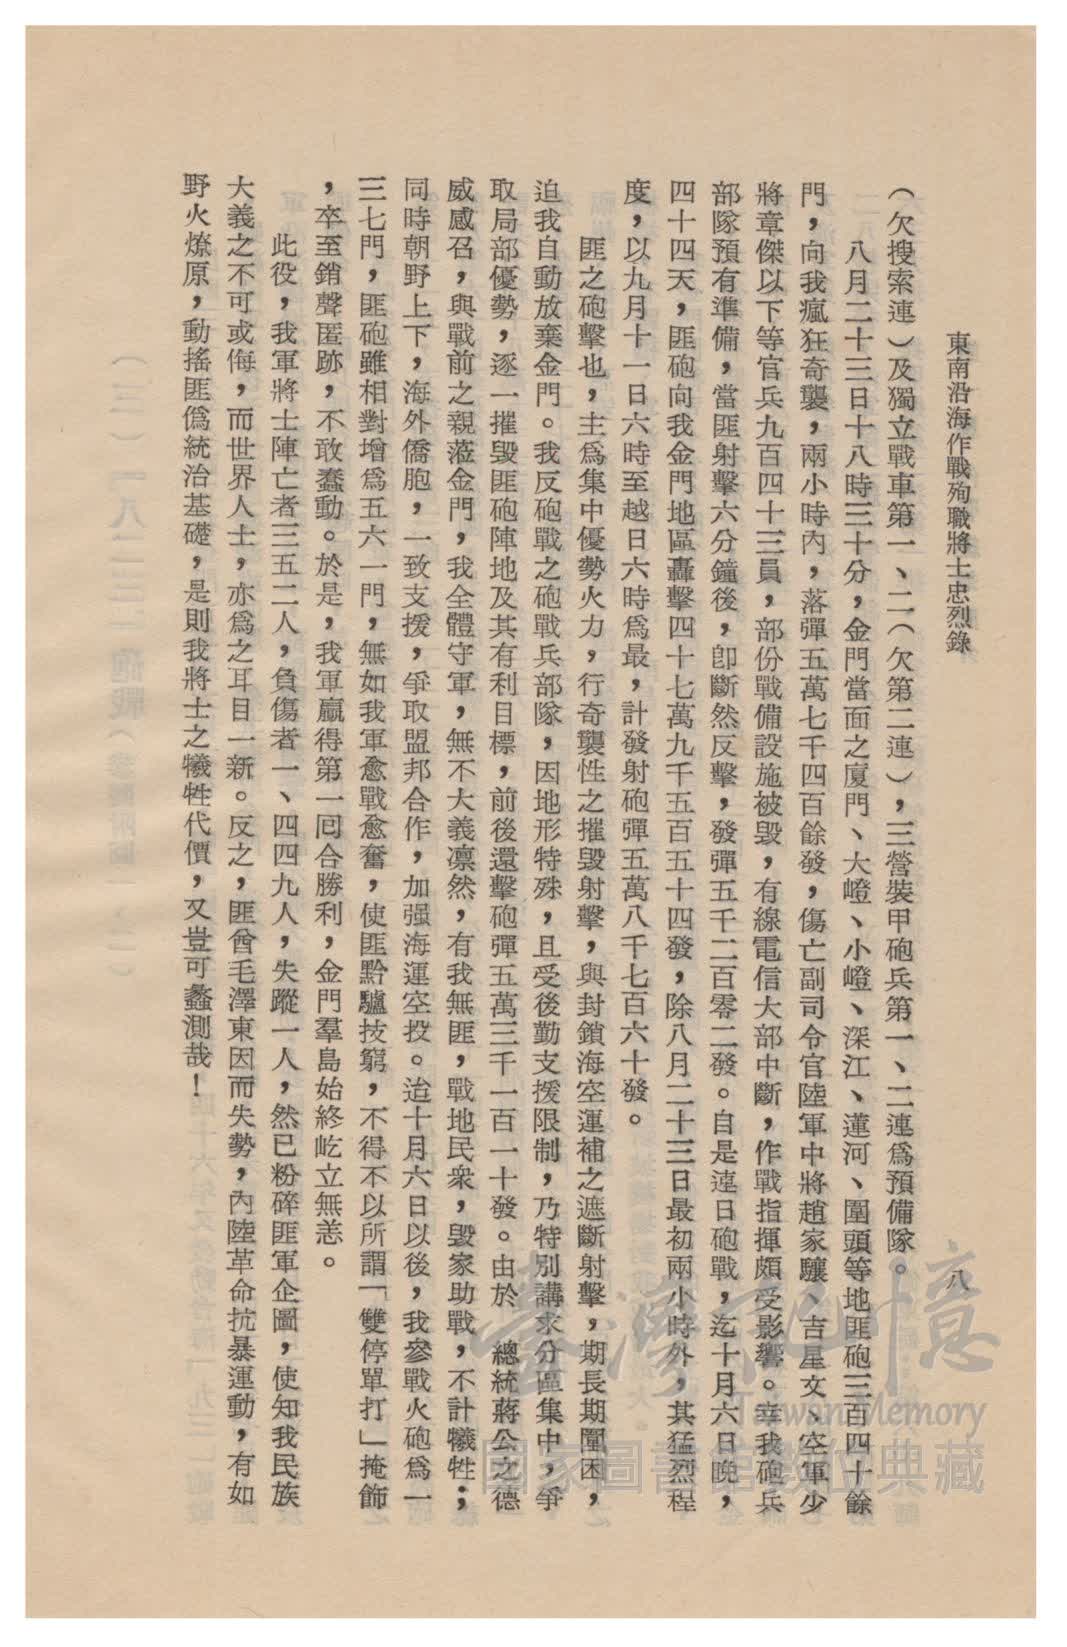 東南沿海作戰殉職將士忠烈錄
八
（欠搜索連）及獨立戰車第一、二（欠第二連），三營裝甲砲兵第一、二連爲預備隊。
八月二十三日十八時三十分，金門當面之廈門、大嶝、小嶝、深江、蓮河、圍頭等地匪砲三百四十餘
門，向我瘋狂奇襲，兩小時內，落彈五萬七千四百餘發，傷亡副司令官陸軍中將趙家驤、吉星文、空軍少
將章傑以下等官兵九百四十三員，部份戰備設施被毀，有線電信大部中斷，作戰指揮頗受影響。幸我砲兵
部隊預有準備，當匪射擊六分鐘後，卽斷然反擊，發彈五千二百零二發。自是連日砲戰，迄十月六日晚，
四十四天，匪砲向我金門地區轟擊四十七萬九千五百五十四發，除八月二十三日最初兩小時外，其猛烈程
度，以九月十一日六時至越日六時爲最，計發射砲彈五萬八千七百六十發。
匪之砲擊也，主爲集中優勢火力，行奇襲性之摧毀射擊，與封鎖海空運補之遮斷射擊，期長期圍困，
迫我自動放棄金門。我反砲戰之砲戰兵部隊，因地形特殊，且受後勤支援限制，乃特別講求分區集中，爭
取局部優勢，逐一摧毀匪砲陣地及其有利目標，前後還擊砲彈五萬三千一百一十發。由於　總統蔣公之德
威感召，與戰前之親蒞金門，我全體守軍，無不大義凛然，有我無匪，戰地民衆，毀家助戰，不計犧牲；
同時朝野上下，海外僑胞，一致支援，爭取盟邦合作，加强海運空投。迨十月六日以後，我參戰火砲爲一
三七門，匪砲雖相對增爲五六一門，無如我軍愈戰愈奮，使匪黔驢技窮，不得不以所謂「雙停單打」掩飾
，卒至銷聲匿跡，不敢蠢動。於是，我軍贏得第一囘合勝利，金門羣島始終屹立無恙。
此役，我軍將士陣亡者三五二人，負傷者一、四四九人，失蹤一人，然已粉碎匪軍企圖，使知我民族
大義之不可或侮，而世界人士，亦爲之耳目一新。反之，匪酋毛澤東因而失勢，內陸革命抗暴運動，有如
野火燎原，動搖匪僞統治基礎，是則我將士之犧牲代價，又豈可蠡測哉！
臺灣記憶
Taiwan Memory
國家圖書館數位典藏